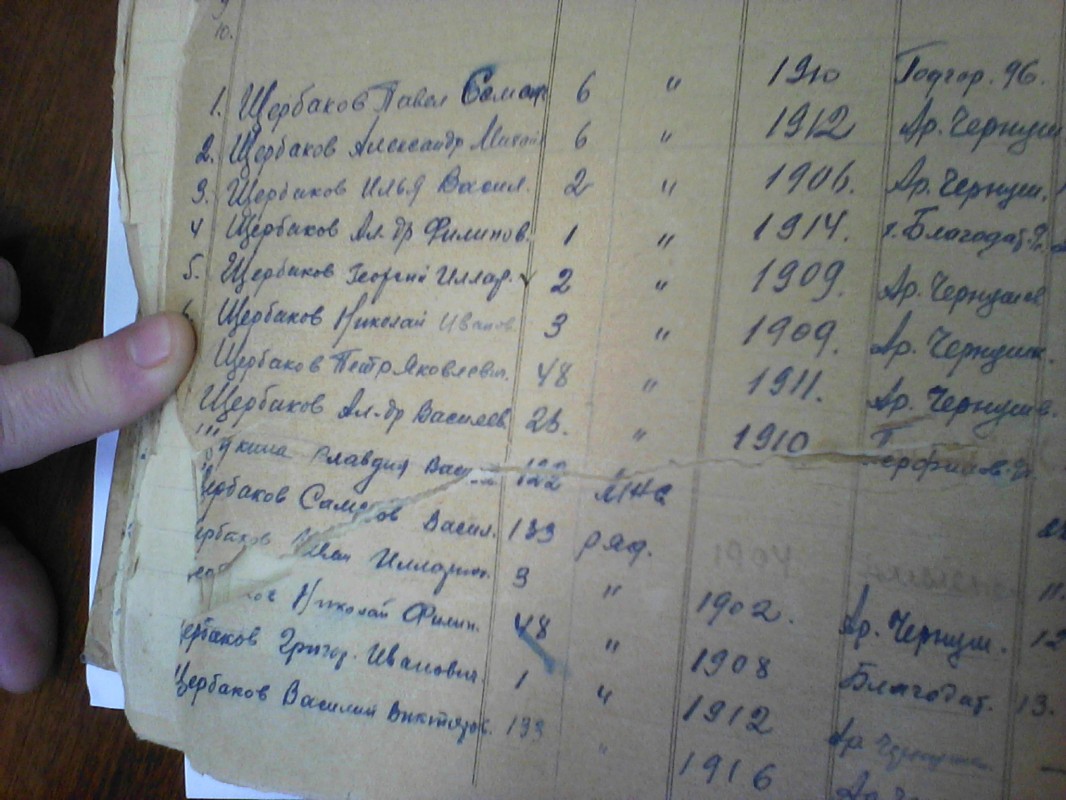 9
10.
1. Щербаков Павел Самах. 6 " 1910 Подгор. 96.
2. Щербаков Александр Михайл 6 " 1912 Ар. Чернуш
3. Щербаков Илья Васил. 2 " 1906. Ар. Чернуш.
4 Щербаков Ал-др Филипов. 1 " 1914. х. Благодат.
5. Щербаков Георгий Иллар. 2 " 1909. Ар. Чернушев
6. Щербаков Николай Иванов. 3 " 1909. Ар. Чернушк.
Щербаков Петр Яковлевич. 48 " 1911. Ар. Чернушв.
Щербаков Ал-др Василев. 23. " 1910
кина Клавдия Вас 122 МНС
ербаков Сам ов Васил. 133 ряд.
ербаков Иван Илларион. 3 " 1902. Ар. Чернуш. 12
Николай Филип. 48 " 1908 Благодат. 13.
ербаков Григор. Иванович. 1 " 1912 Ар.
Щербаков Василий Виктор. 133 " 1916 Ар.